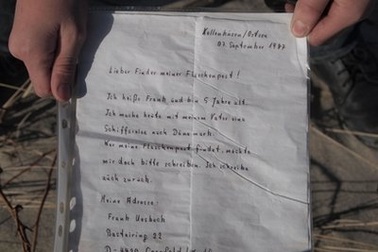 Kellenhusen/Ostsee
07. September 1987
Lieber Finder meiner Flaschenpost!
Ich heiße Frank und bin 5 Jahre alt.
Ich mache heute mit meinem Vater eine
Schiffsreise nach Dänemark.
Wer meine Flaschenpost findet, möchte
mir doch bitte schreiben. Ich schreibe
auch zurück.
Meine Adresse:
Frank
22